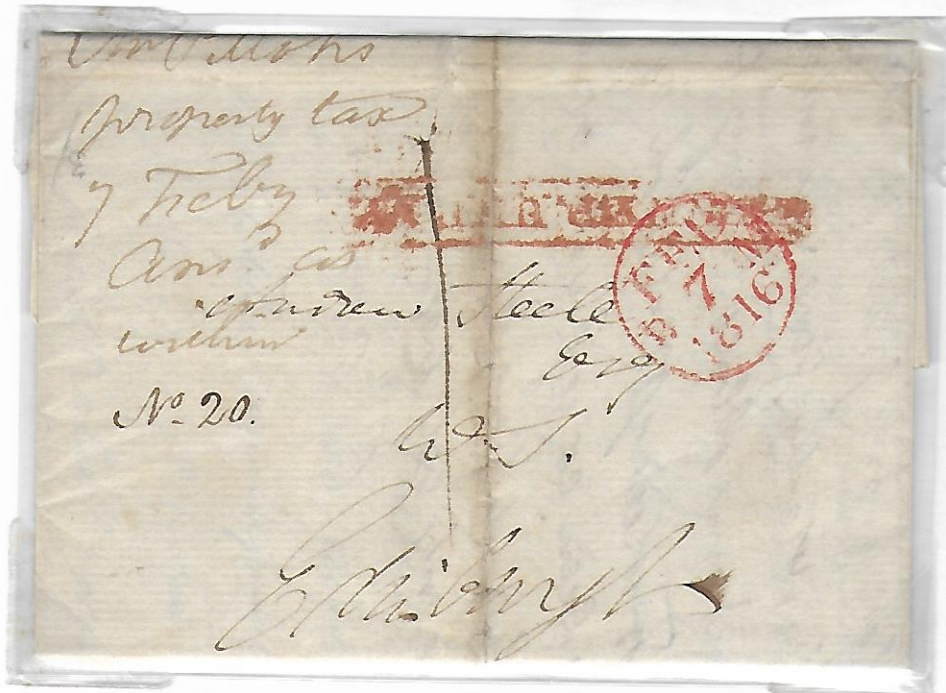 property tax
7 Feby
Ansd as
within
No. 20.
Andrew Steele
Esq
W.S.
Edinburgh
FEB
7
1816